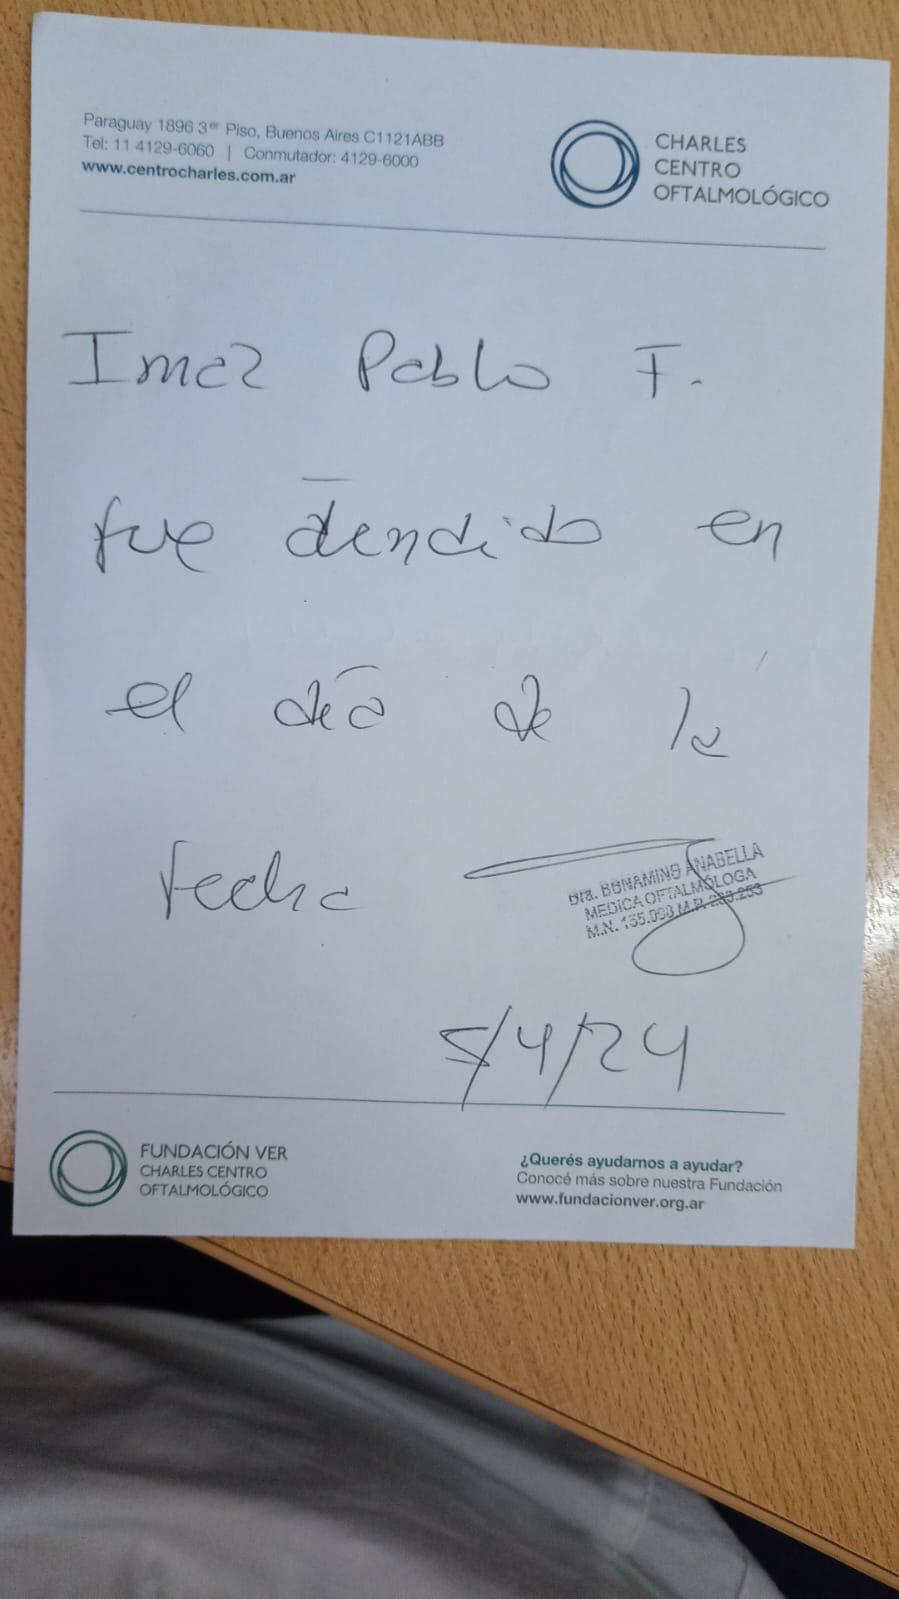 Paraguay 1896 3er Piso, Buenos Aires C1121ABB
Tel: 11 4129-6060 | Conmutador: 4129-6000
www.centrocharles.com.ar
CHARLES
CENTRO
OFTALMOLÓGICO
Imaz Pablo F.
fue atendido en
el día de la
fecha
Dra. BONAMINO ANABELLA
MEDICA OFTALMÓLOGA
M.N. 155.093 M.P.
5/4/24
FUNDACIÓN VER
CHARLES CENTRO
OFTALMOLÓGICO
¿Querés ayudarnos a ayudar?
Conocé más sobre nuestra Fundación
www.fundacionver.org.ar